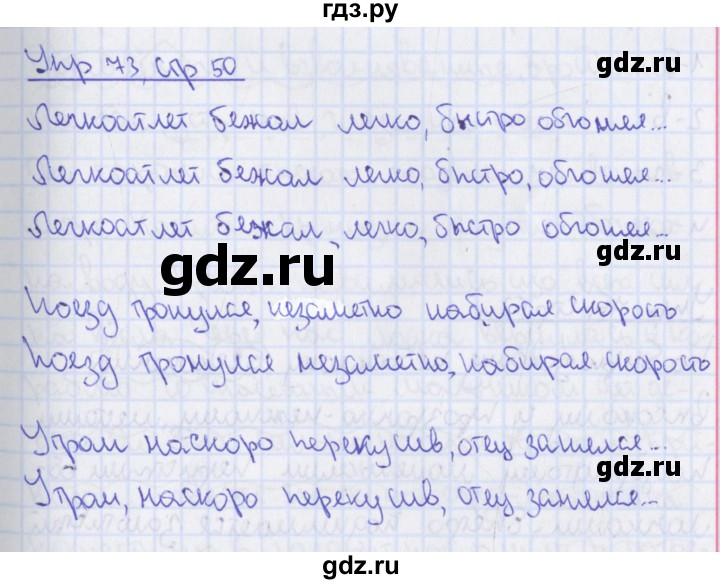 гдз.ру
Упр 73, стр 50
gdz.ru
Легкоатлет бежал легко, быстро обгоняя...
gdz.ru
Легкоатлет бежал легко, быстро, обгоняя...
Легкоатлет бежал, легко, быстро обгоняя...
gdz.ru
gdz.ru
Поезд тронулся, незаметно набирая скорость
Поезд тронулся незаметно, набирая скорость
Утром наскоро перекусив, отец занялся...
gdz.ru
Утром, наскоро перекусив, отец занялся...
gdz.ru